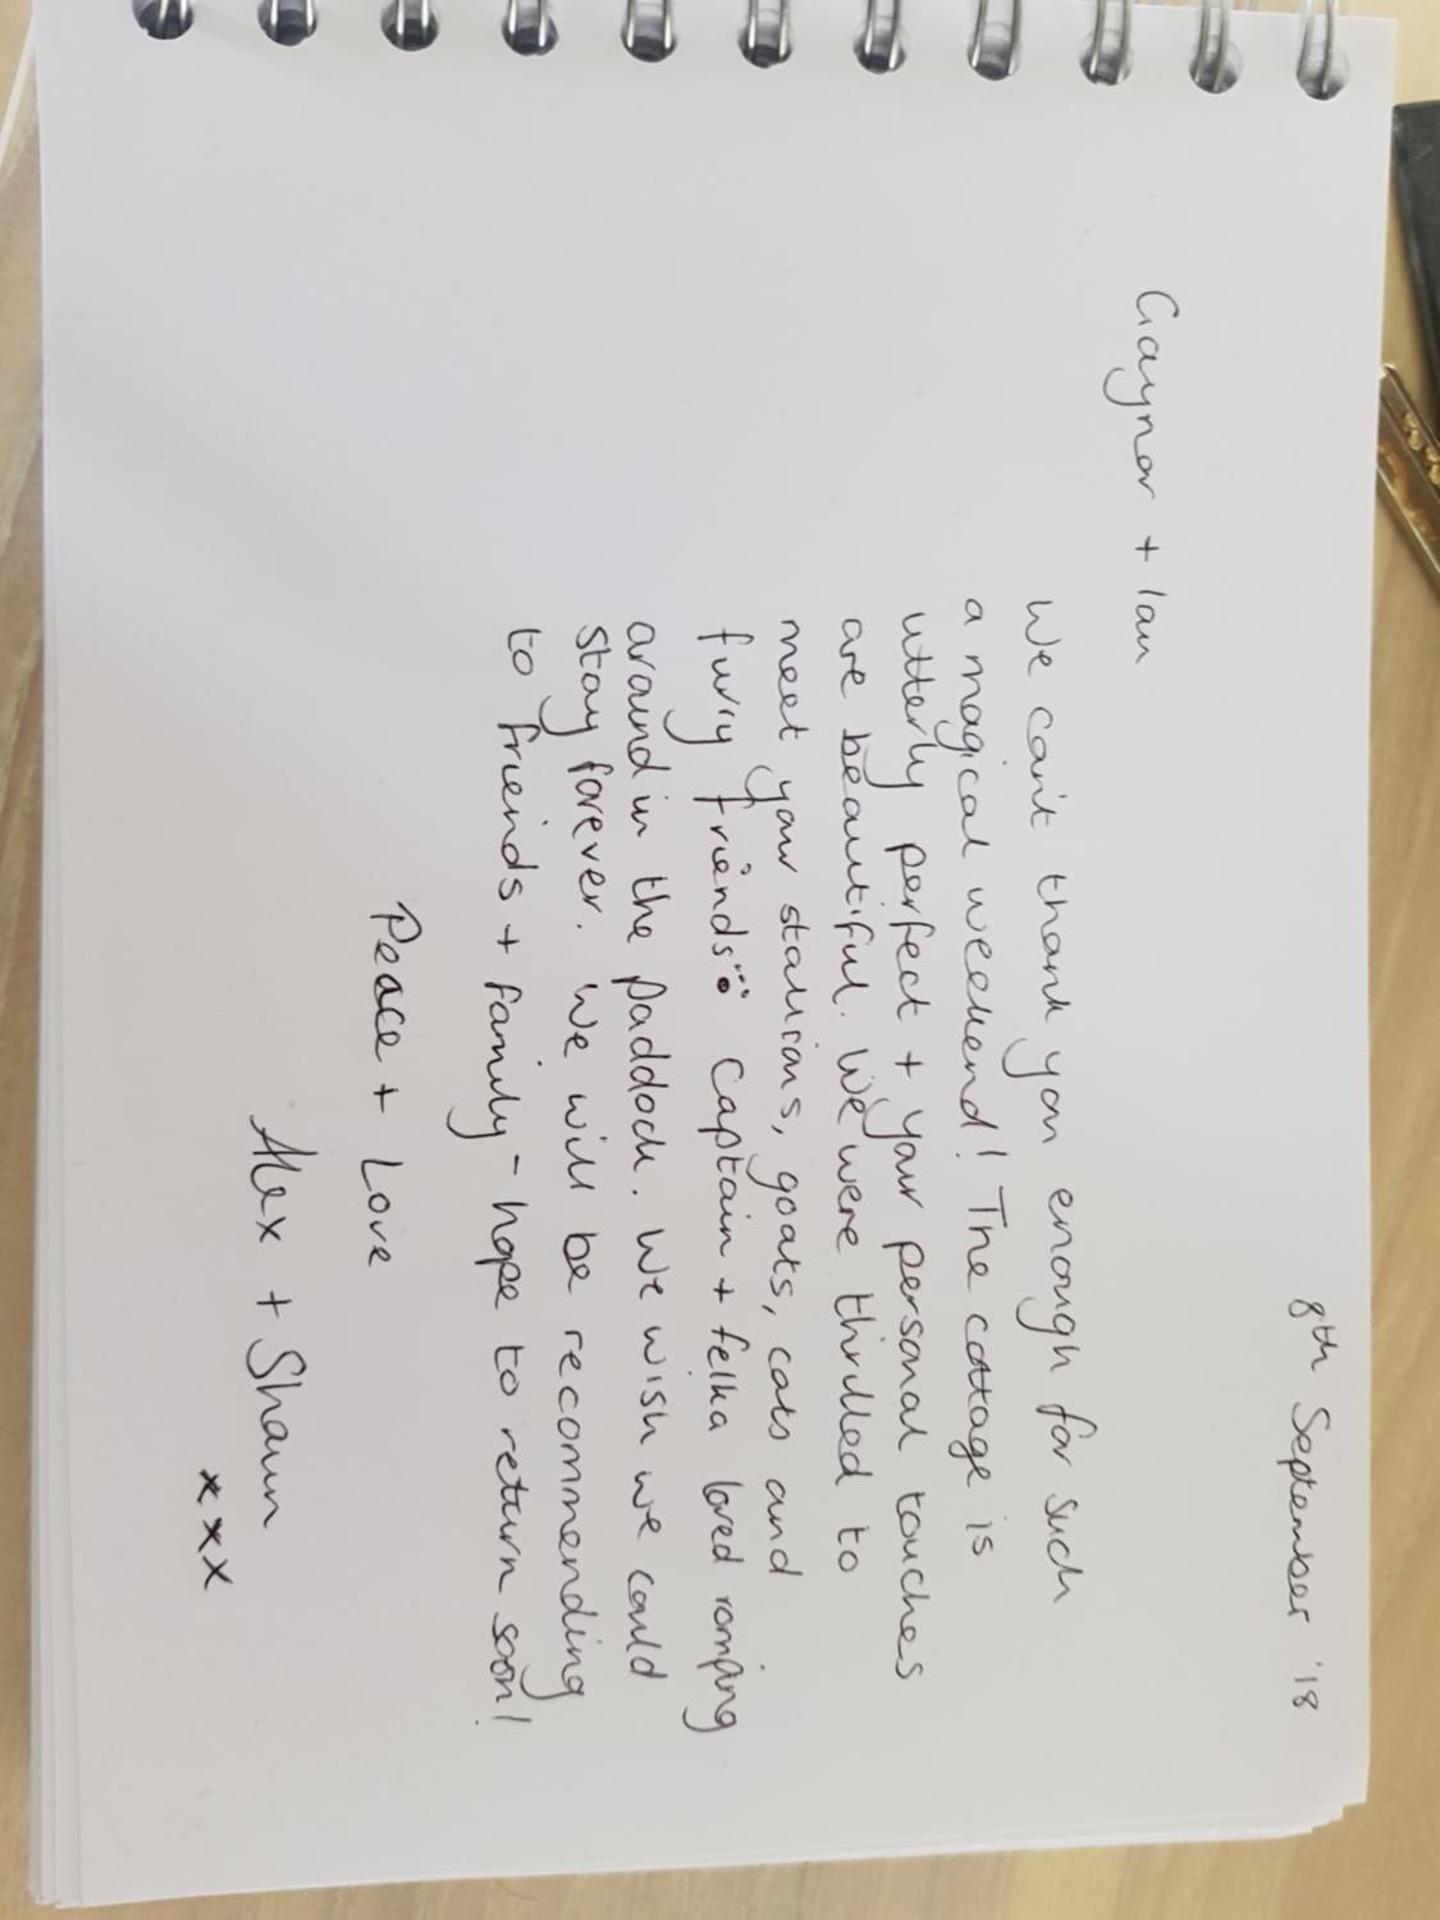 8th September '18
Gaynor + Ian
We can't thank you enough for such
a magical weekend! The cottage is
utterly perfect + your personal touches
are beautiful. We were thrilled to
meet your stallions, goats, cats and
furry friends Captain + felka loved romping
around in the paddock. We wish we could
stay forever. We will be recommending
to friends + family - hope to return soon!
Peace + Love
Alex + Shaun
xxx